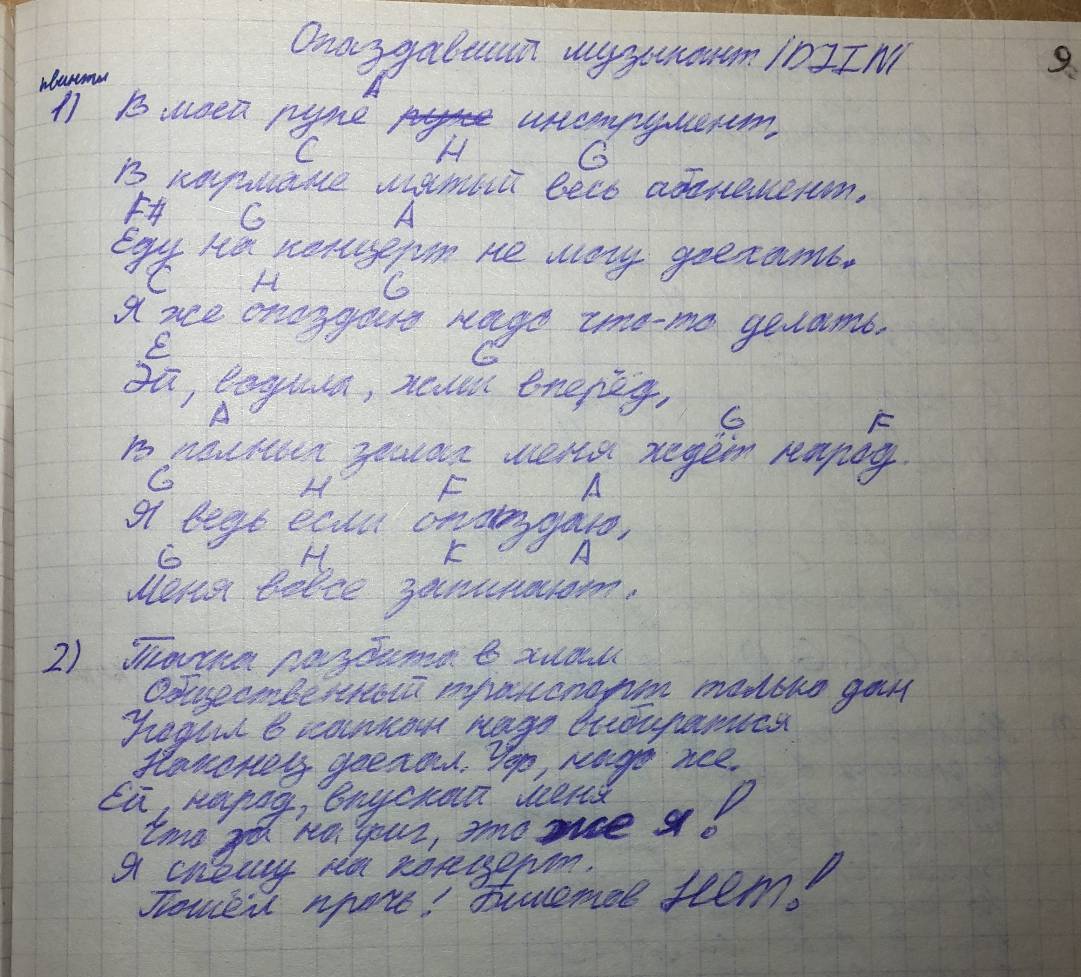 Опаздавший музыкант /DJIN/
9
квинты
A
1) В моей руке руке инструмент,
C H G
В кармане мятый весь абонемент.
F# G A
Еду на концерт не могу доехать.
C H G
Я же опоздаю надо что-то делать.
E G
Эй, водила, жми вперёд,
A G F
В полных залах меня ждёт народ.
G H F A
Я ведь если опаздаю,
G H F A
Меня вовсе запинают.
2) Тачка разбита в хлам
Общественный транспорт только дан
Угодил в капкан надо выбираться
Наконец доехал. Уф, надо же.
Ей, народ, впускай меня
Что за на фиг, это же я!
Я спешу на концерт.
Пошёл прочь! Билетов нет!